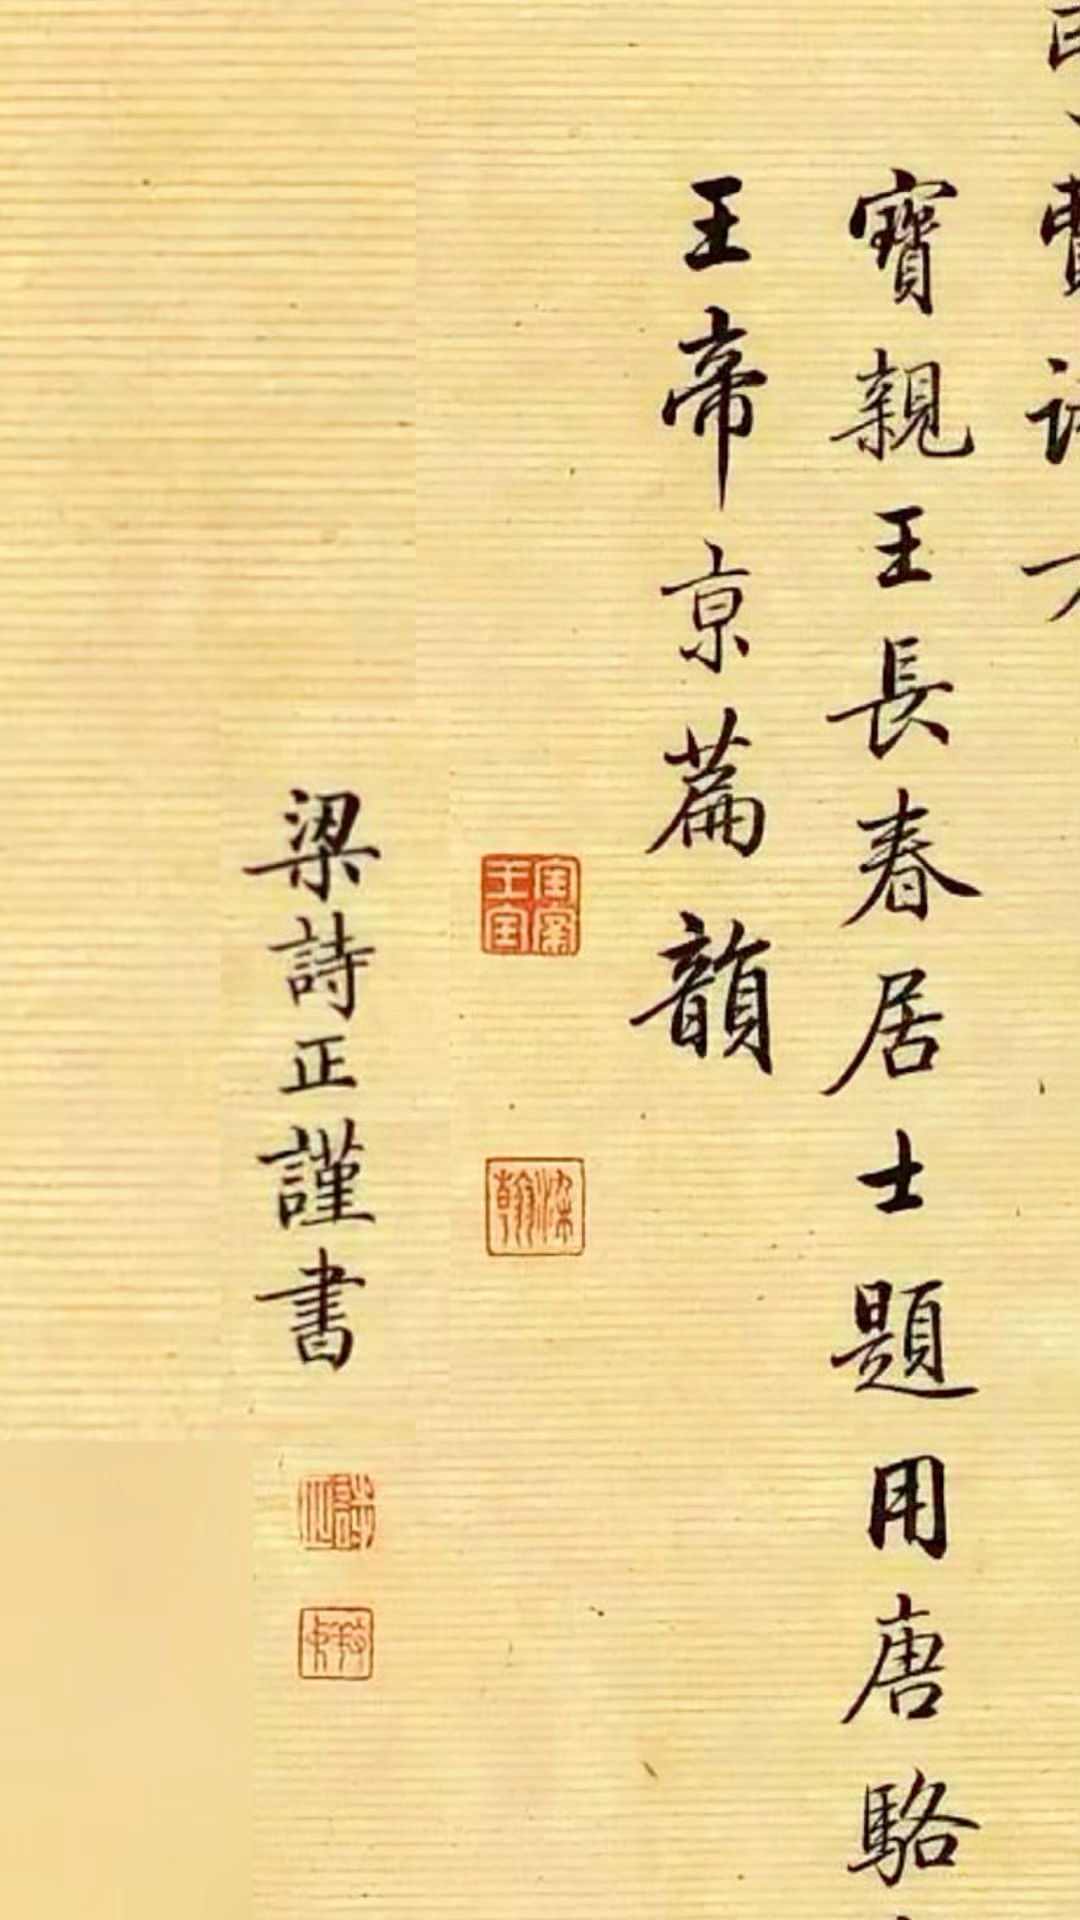 寶親王長春居士題用唐駱
王帝京篇韻
梁詩正謹書